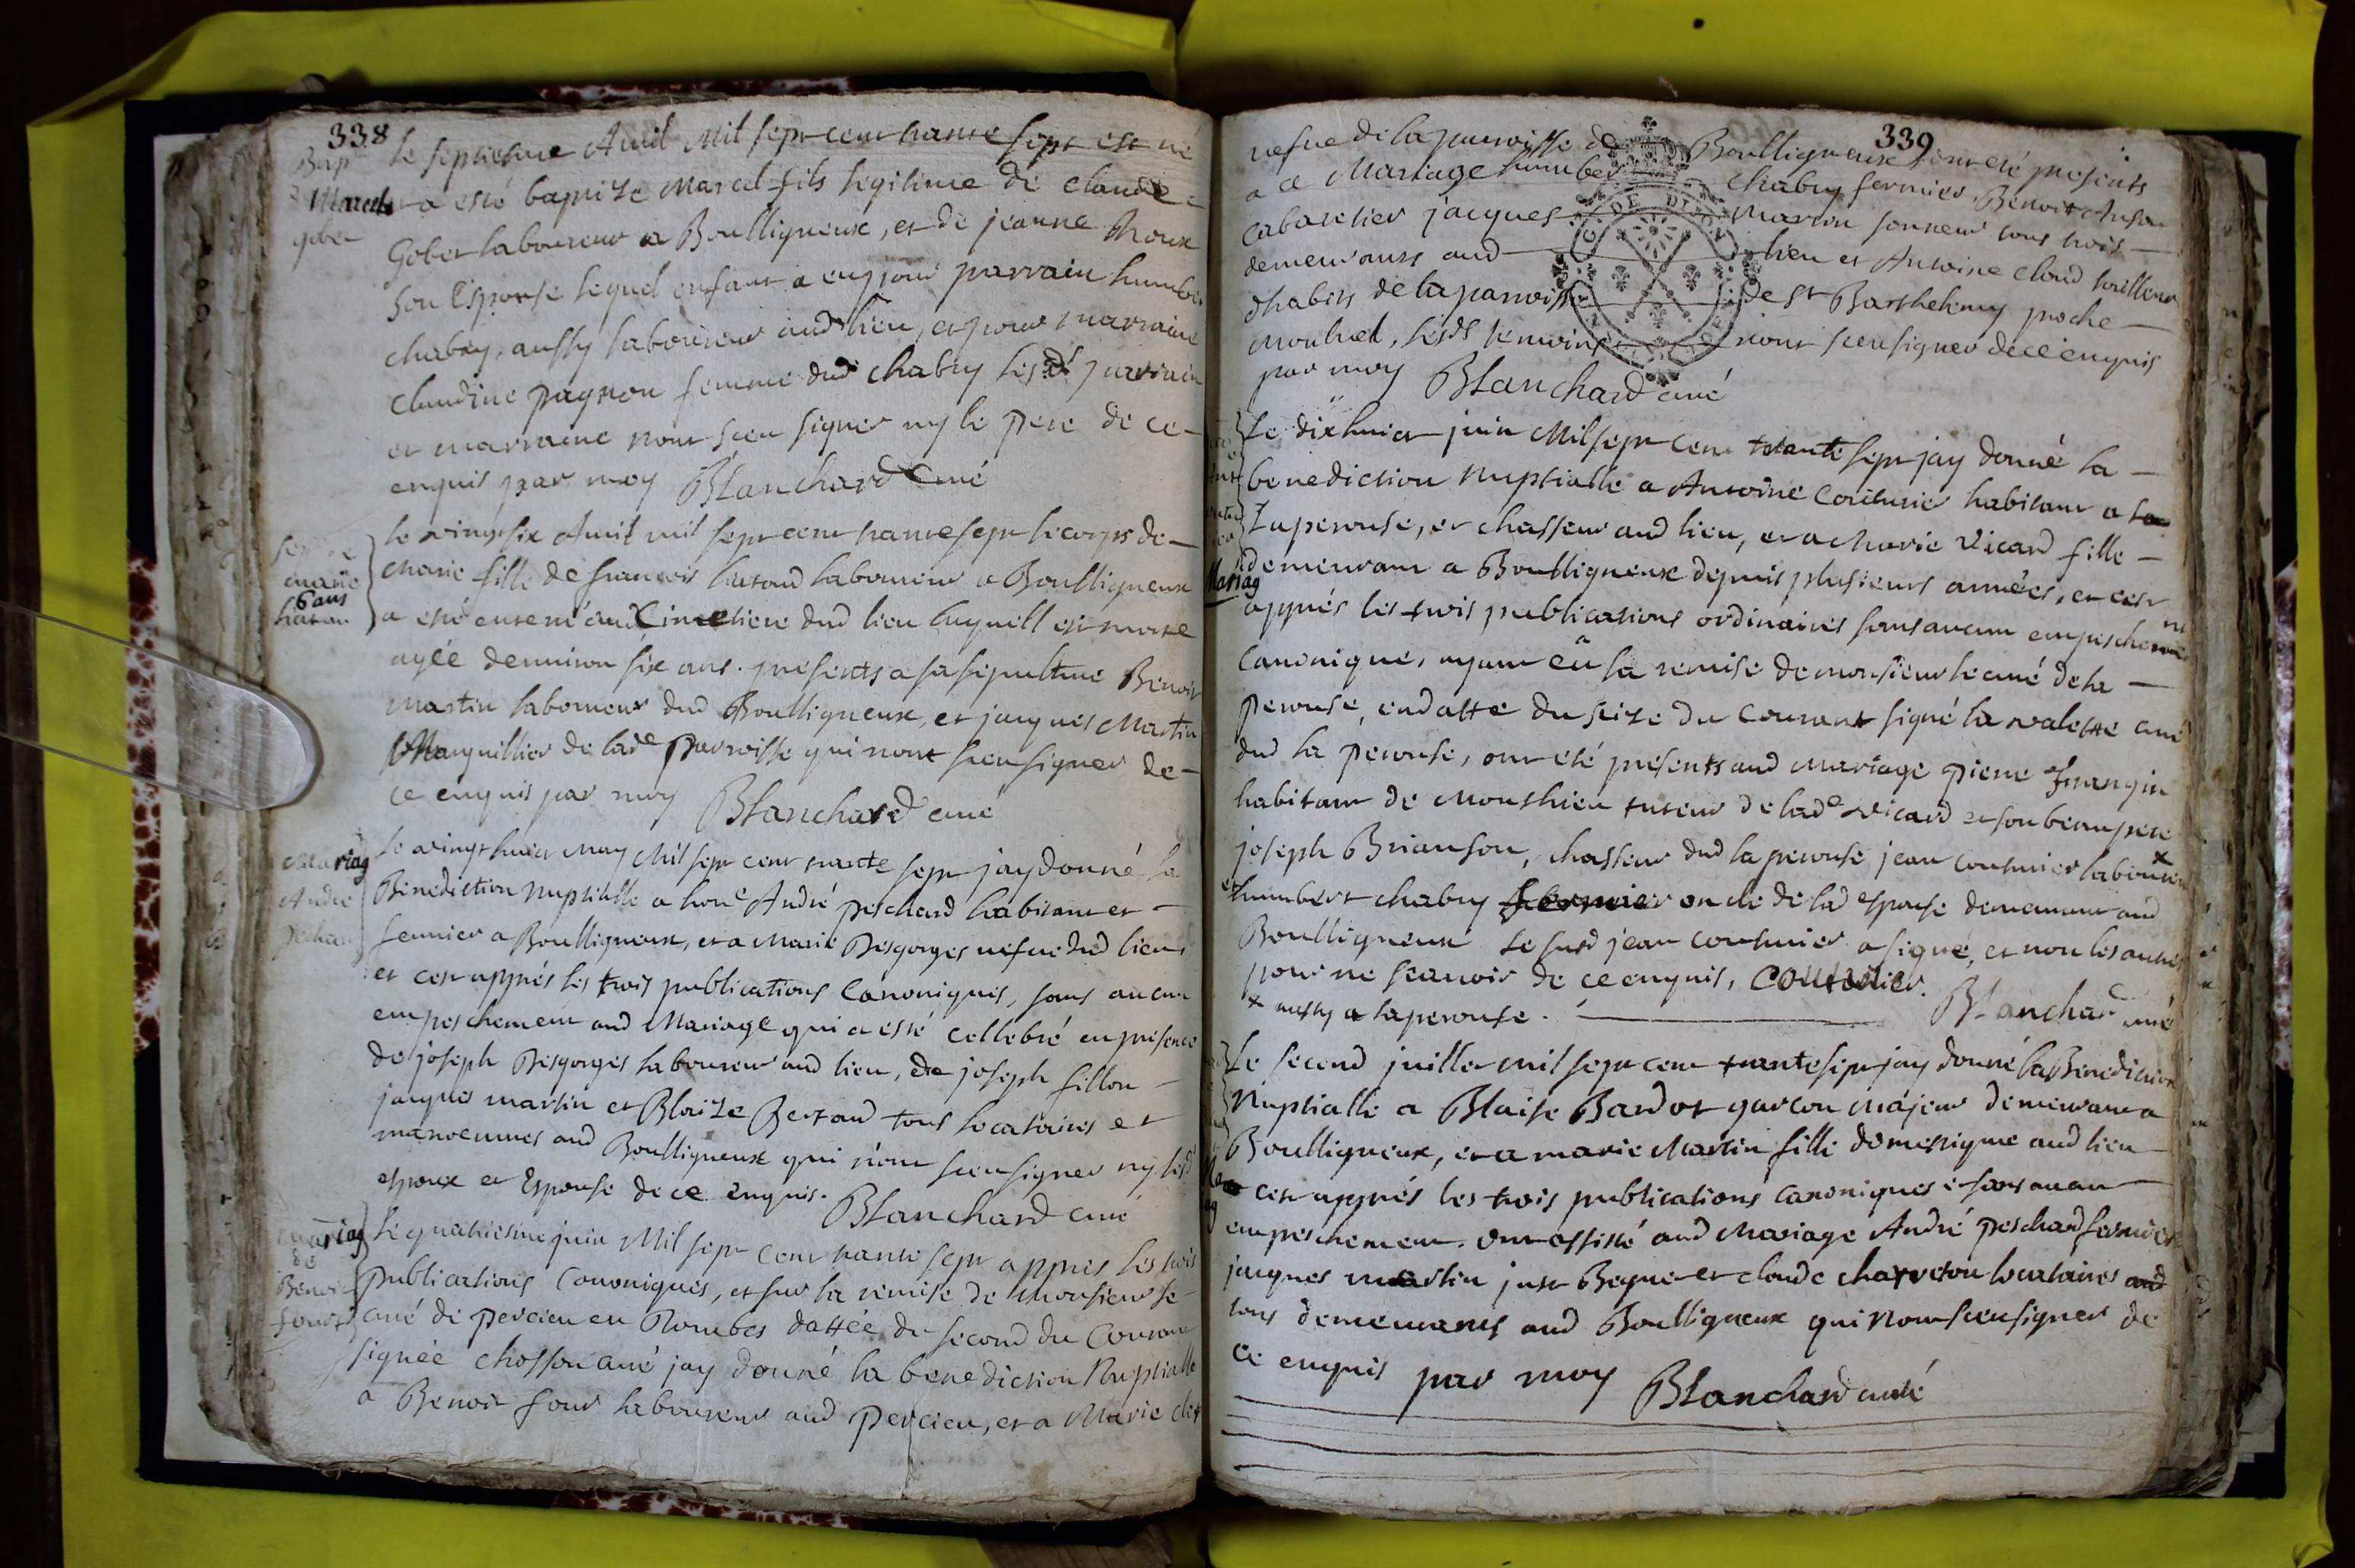 338
Bap.
Marcel
gobet
Le septiesme Avril Mil sept cent trante sept est né
a esté baptize Marcel fils légitime de Claude
Gobet laboureur a Boulligneux, et de jeanne Roux
son Espouse lequel enfant a eu pour parrain humber
chabry, aussy laboureur aud lieu, et pour marraine
Claudine pagnon femme dud chabry lesd parrain
et marraine nont sceu signer ny le pere de ce
enquis par moy Blanchard curé
marie
6 ans
le vingt six Avril mil sept cent trante sept le corps de
Marie fille de francois laboureur a Boulligneux
a esté enterré aud Cimetiere dud lieu laquelle est morte
agée denuiron six ans. presents a sa sepulture Benoit
Martin laboureur dud Boulligneux, et jacques Martin
Marguillier de lade parroisse qui nont sceu signer de
ce enquis par moy Blanchard curé
Mariag
André
pechard
Le vingt huict May Mil sept cent trante sept jay donné la
Benediction Nuptialle a hone André peschard habitant et
fermier a Boulligneux, et a Marie Desgorges vefue dud lieu
et cest appnés les trois publications Canoniques, sans aucun
empeschement aud Mariage qui a esté cellebré en présence
de joseph Desgorges laboureur aud lieu, de joseph fillon
jacques martin et Blaize Bertaud tous locataires et
manoeuures aud Boulligneux qui nont sceu signer ny lesd
espoux et Espouse de ce enquis. Blanchard curé
mariag
de
Benoit
four
Le quatriesme juin Mil sept cent trante sept appnes les trois
publications Canoniques, et sur la remise de Monsieur le
curé de percieu en Dombes dattée du second du Courant
signée chosson curé jay donné la benediction Nuptialle
a Benoit four laboureur aud percieu, et a Marie
339
vefue de la parroisse de Boulligneux, ont eté presents
a ce Mariage humber chabry fermier, Benoit
cabaretier jacques Martin sonneur tous trois
demeurants aud lieu et Antoine Cloud tailleur
dhabits de la parroisse de St Barthelemy proche
Montluel, lesds temoins nont sceu signer de ce enquis
par moy Blanchard curé
Mariag
Le dixhuict juin Mil sept cent trante sept jay donné la
benediction Nuptialle a Antoine Couturier habitant a la
Laperouse, et chasseur aud lieu, et a Marie Vicard fille
demeurant a Boulligneux depuis plusieurs années, et cest
appnés les trois publications ordinaires sans aucun empeschement
Canonique, ayant eû la remise de monsieur le curé de la
perouse, en datte du seize du Courant signé la valette curé
dud la perouse, ont eté presents aud Mariage pierre frangin
habitant de Monthieu tuteur de lade Vicard et son beaupere
joseph Brianson, chasseur dud la perouse jean Couturier laboureur x
et humbert chabry fermier oncle de lad espouse demeurant aud
Boulligneux le susd jean couturier a signé, et non les autres
pour ne scauoir de ce enquis, Couturier. Blanchard curé
x aussy a laperouse.
Le second juillet mil sept cent trante sept jay donné la Benediction
Nuptialle a Blaise Bardot garcon majeur demeurant a
Boulligneux, et a marie Martin fille domestique aud lieu
et cest appnés les trois publications canoniques et sans aucun
empeschement. ont assisté aud Mariage André peschard fermier
jacques martin just Begue et claude charreton locataires aud
tous demeurants aud Boulligneux qui nont sceu signer de
ce enquis par moy Blanchard curé